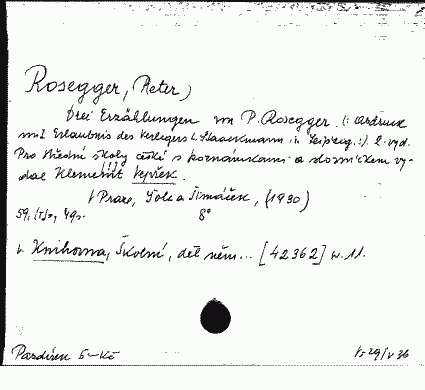 Rosegger, (Peter)
Drei Erzählungen von P. Rosegger. (: Abdruck
mit Erlaubnis des Verlegers L. Staackmann in Leipzig :). 2. vyd.
Pro střední školy české s poznámkami a slovníčkem vy-
dal Klement Vejšek.
V Praze, Šolc a Šimáček, (1930)
59, 49 s. 8°
Knihovna, Školní, děl něm... [42362] w. 11.
Pazdírek 5-Kč